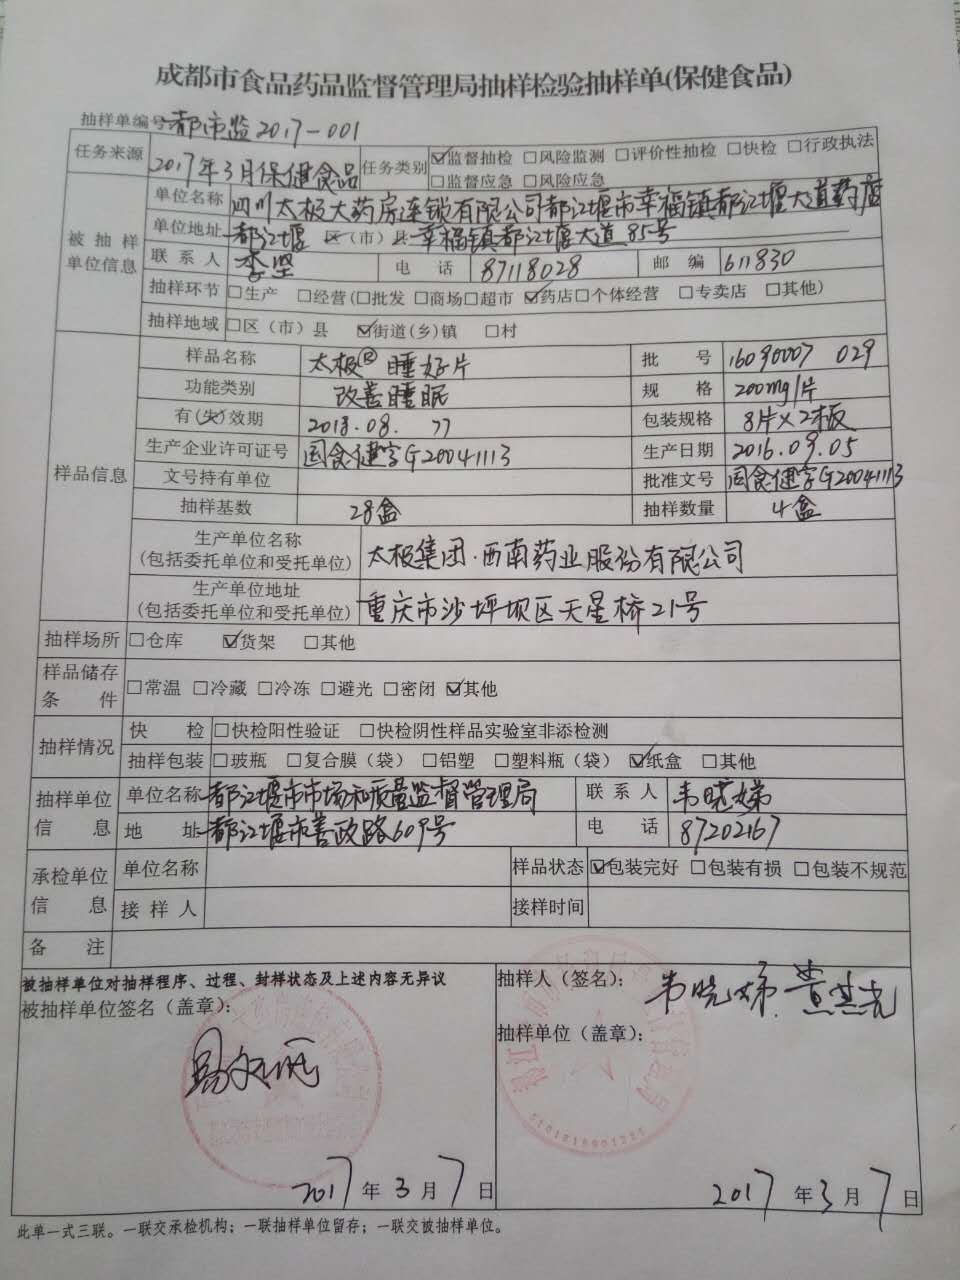 成都市食品药品监督管理局抽样检验抽样单(保健食品)
抽样单编号 都市监2017-001
任务来源 2017年3月保健食品 任务类别 ☑监督抽检 □风险监测 □评价性抽检 □快检 □行政执法
□监督应急 □风险应急
被抽样单位信息 单位名称 四川太极大药房连锁有限公司都江堰市幸福镇都江堰大道药店
单位地址 都江堰 区(市)县 幸福镇都江堰大道85号
联系人 李坚 电话 87118028 邮编 611830
抽样环节 □生产 □经营(□批发 □商场□超市 ☑药店□个体经营 □专卖店 □其他)
抽样地域 □区(市)县 ☑街道(乡)镇 □村
样品信息 样品名称 太极® 睡好片 批号 16090007 029
功能类别 改善睡眠 规格 200mg/片
有(失)效期 2018.08. 包装规格 8片×2板
生产企业许可证号 国食健字G20041113 生产日期 2016.09.05
文号持有单位 批准文号 国食健字G20041113
抽样基数 28盒 抽样数量 4盒
生产单位名称
(包括委托单位和受托单位) 太极集团·西南药业股份有限公司
生产单位地址
(包括委托单位和受托单位) 重庆市沙坪坝区天星桥21号
抽样场所 □仓库 ☑货架 □其他
样品储存条件 □常温 □冷藏 □冷冻 □避光 □密闭 ☑其他
抽样情况 快检 □快检阳性验证 □快检阴性样品实验室非添检测
抽样包装 □玻瓶 □复合膜(袋) □铝塑 □塑料瓶(袋) ☑纸盒 □其他
抽样单位信息 单位名称 都江堰市市场和质量监督管理局 联系人 韦晓娣
地址 都江堰市善政路609号 电话 87202167
承检单位信息 单位名称 样品状态 ☑包装完好 □包装有损 □包装不规范
接样人 接样时间
备注
被抽样单位对抽样程序、过程、封样状态及上述内容无异议
被抽样单位签名(盖章):
抽样人(签名): 韦晓娣
抽样单位(盖章):
2017年3月7日
2017年3月7日
此单一式三联。一联交承检机构;一联抽样单位留存;一联交被抽样单位。